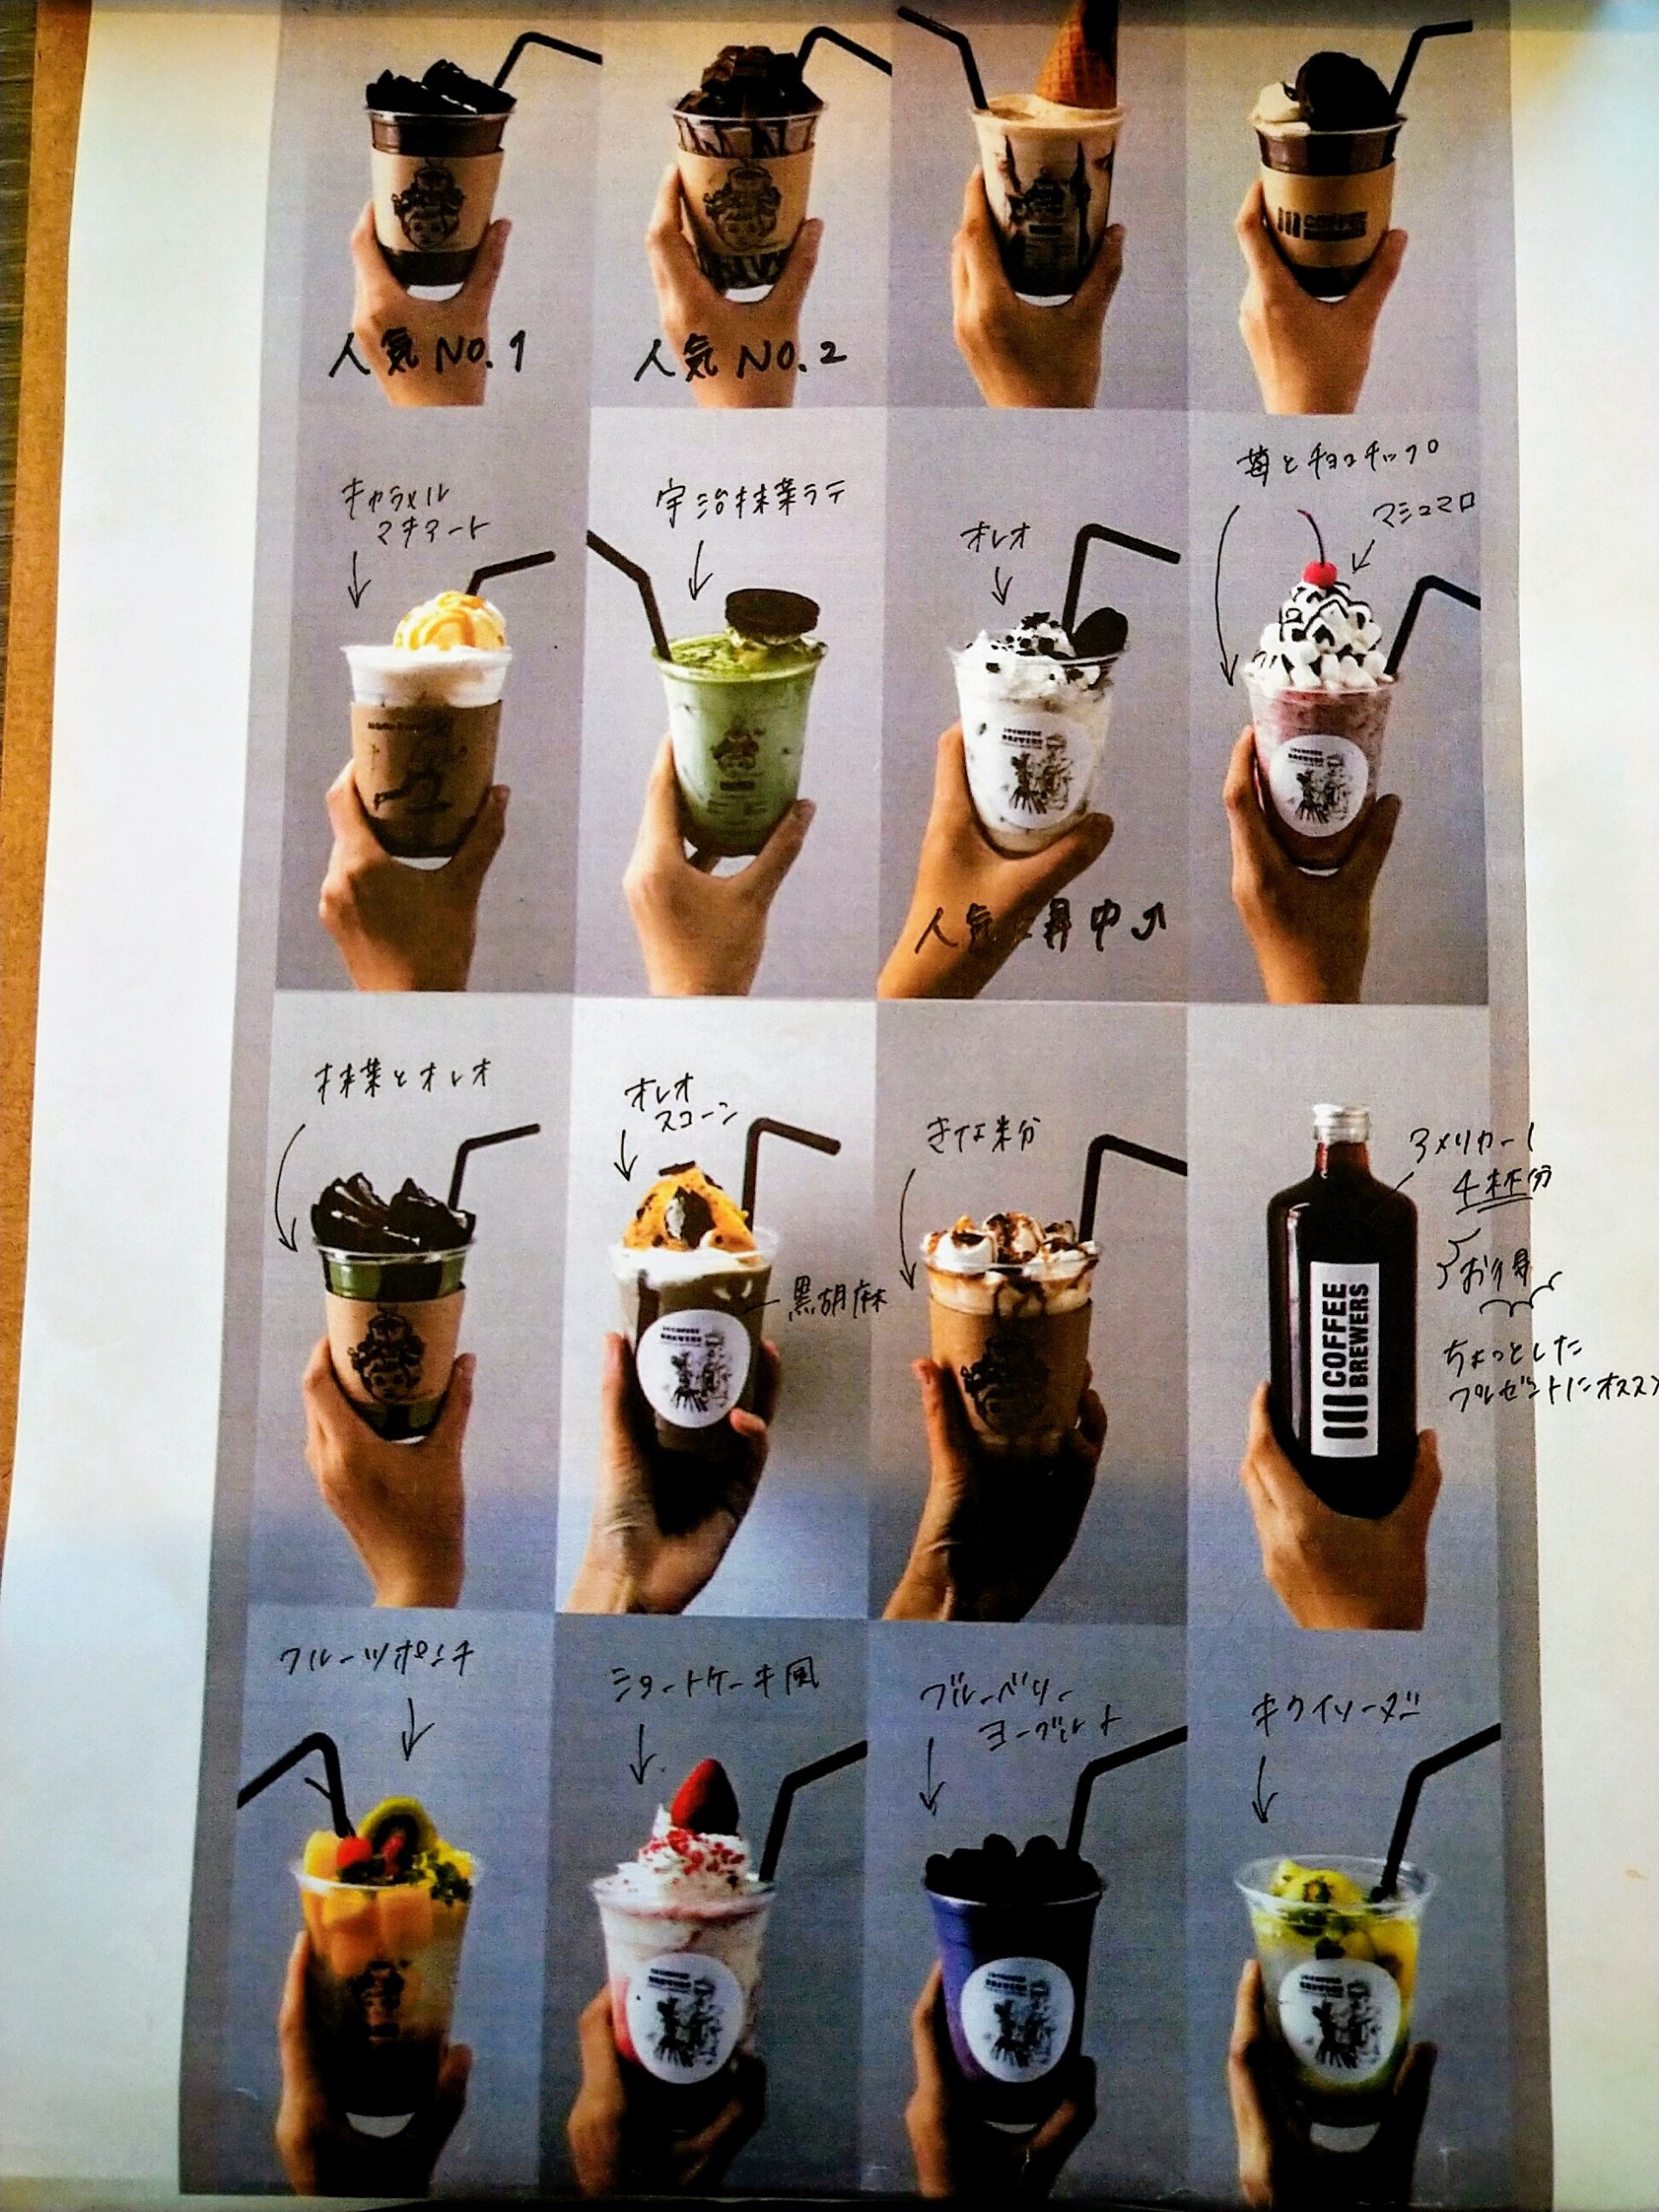 人気 NO.1
人気 NO.2
COFFEE
キャラメル
マキアート
宇治抹茶ラテ
オレオ
苺とチョコチップ
マシュマロ
人気上昇中
抹茶とオレオ
オレオ
スコーン
黒胡麻
きな粉
アメリカーノ
4杯分
お得
ちょっとした
プレゼントにオススメ
COFFEE
BREWERS
フルーツポンチ
ショートケーキ風
ブルーベリー
ヨーグルト
キウイソーダ